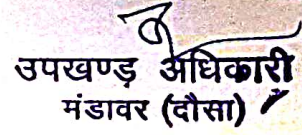 उपखण्ड़ अधिकारी
मंडावर (दौसा)